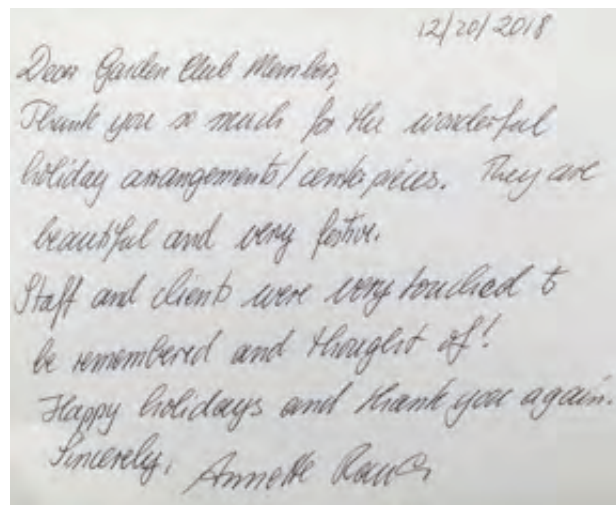 12/20/2018
Dear Garden Club Members,
Thank you so much for the wonderful
holiday arrangements/centerpieces. They are
beautiful and very festive.
Staff and clients were very touched to
be remembered and thought of!
Happy holidays and thank you again.
Sincerely, Annette